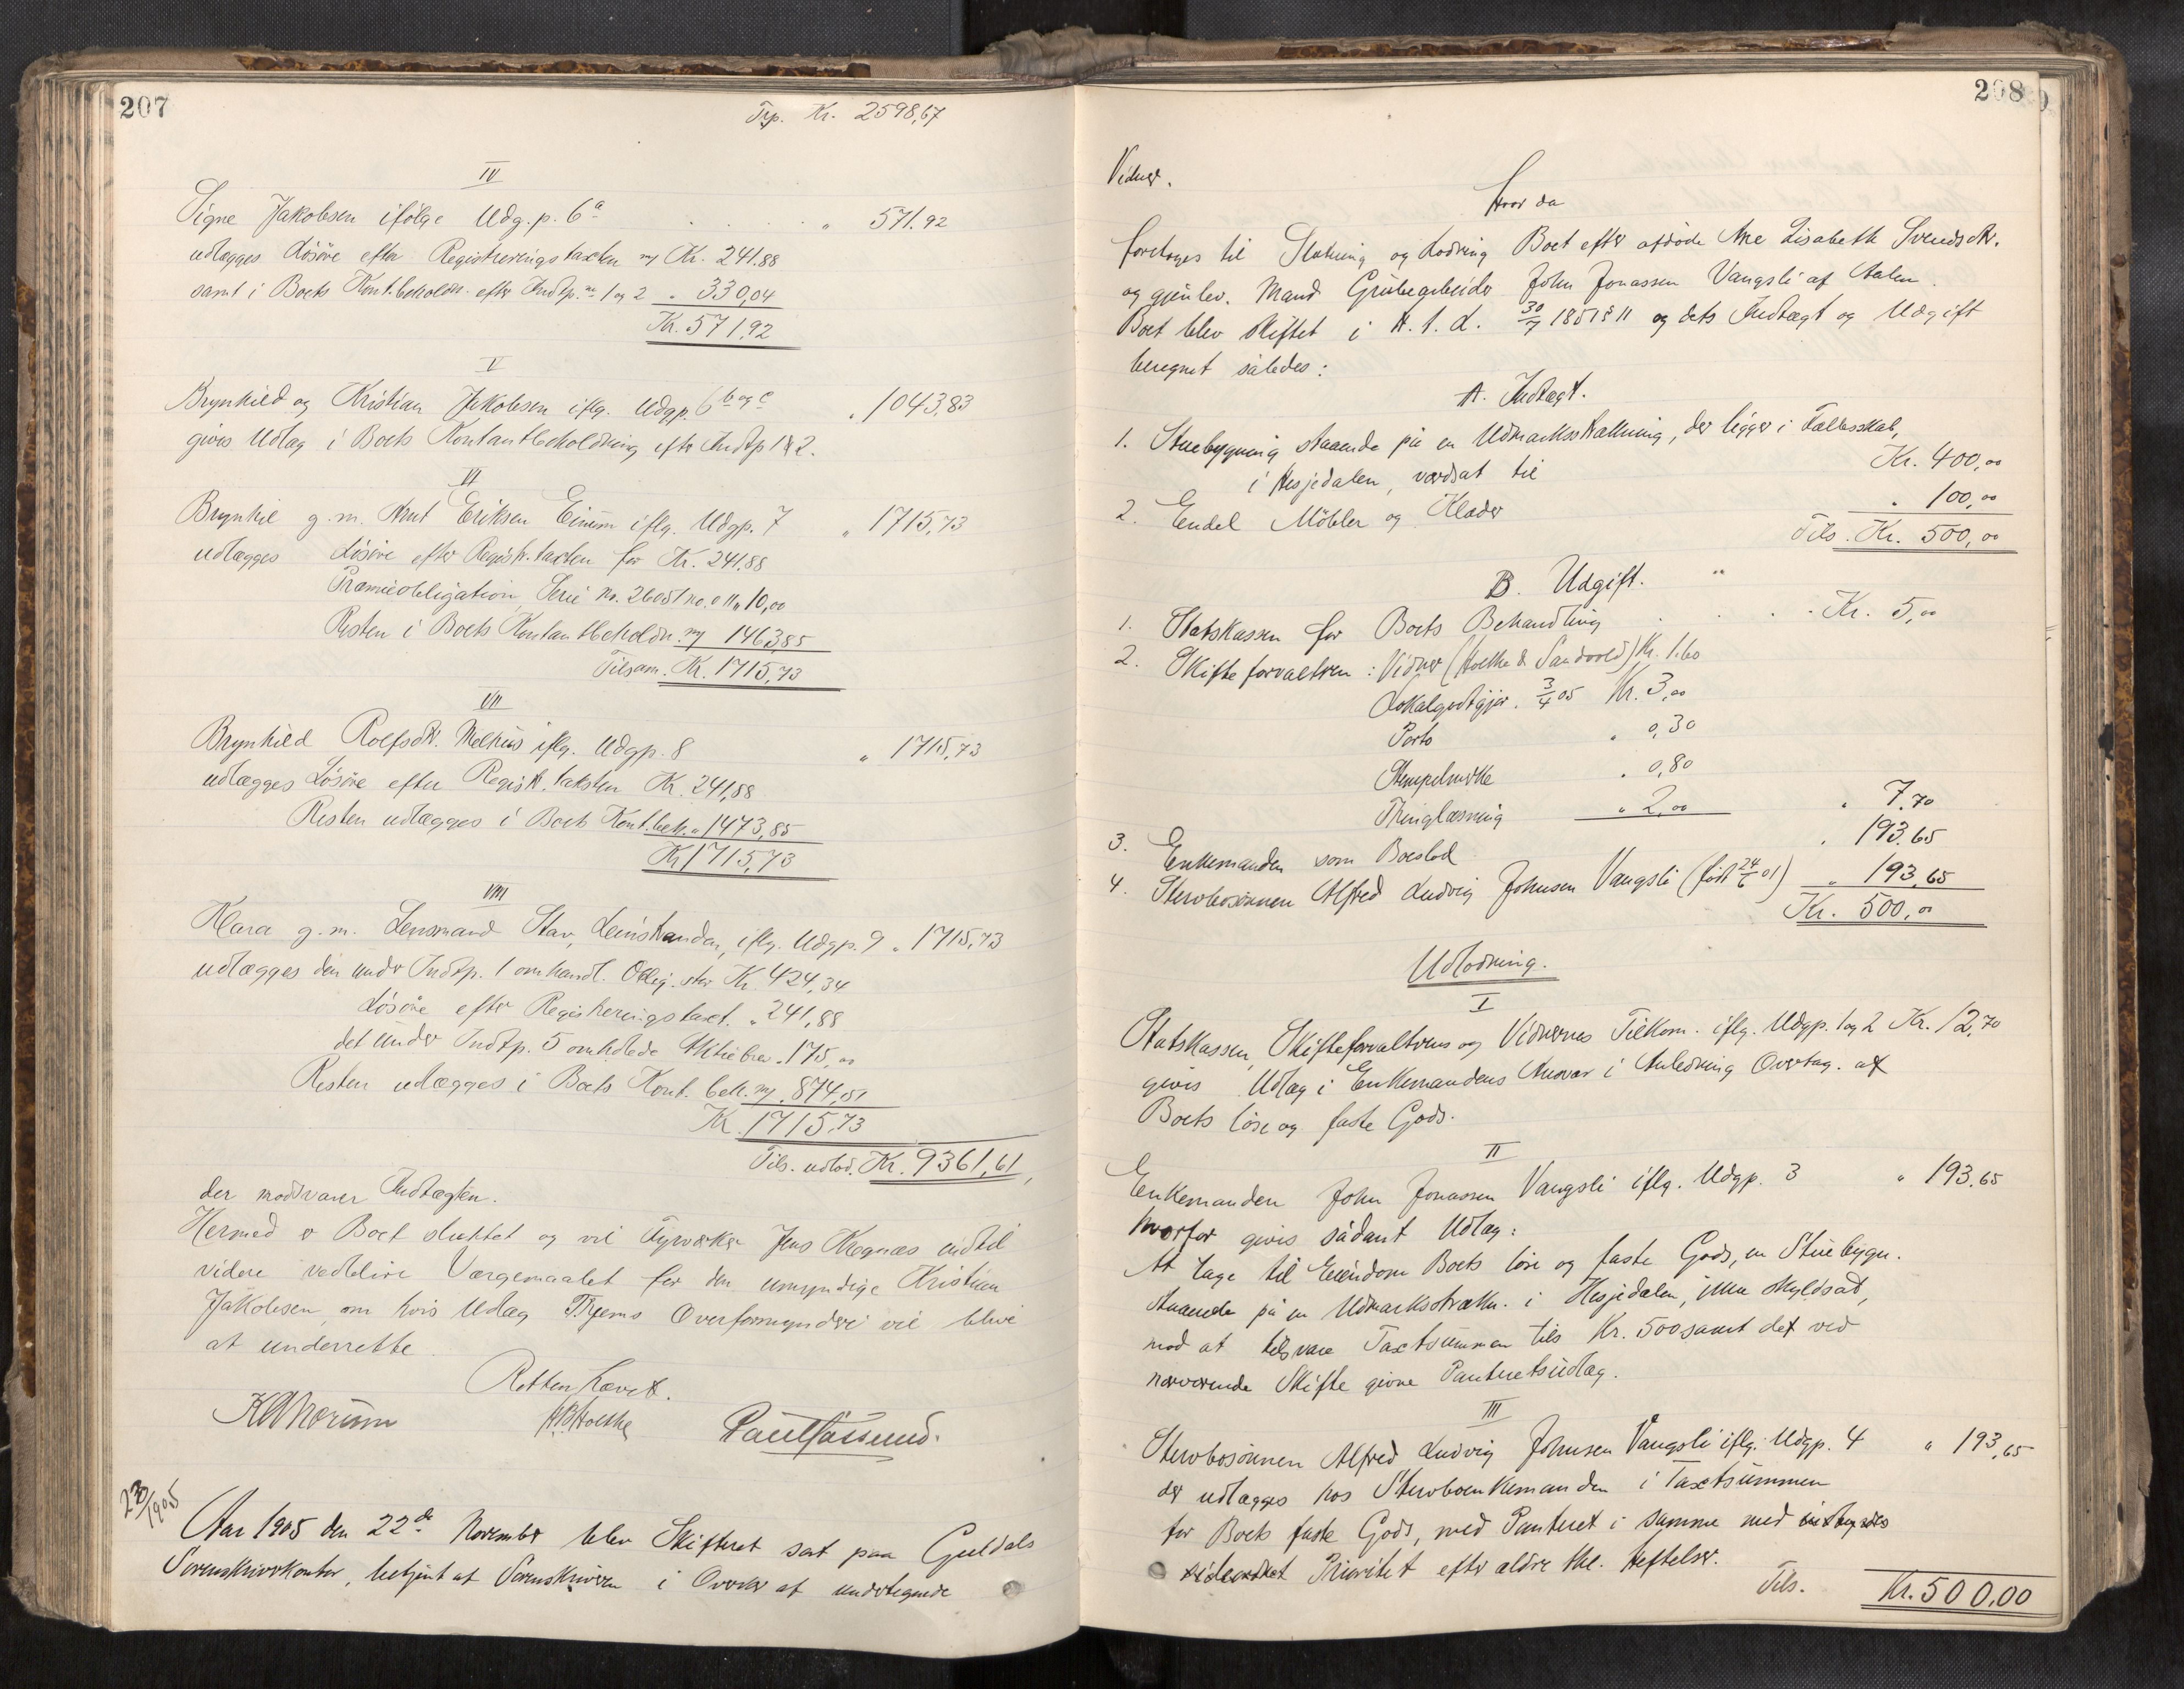 207
Trp. Kr. 2598,67
IV
Signe Jakobsen ifölge Udg.p. 6 a . . . " 571.92
udlægges Lösöre efter Registreringstaxten m/ Kr. 241.88
samt i Boets Kont.beholdn. efter Indtp. no 1 og 2 " 330,04
Kr. 571,92
V
Brynhild og Kristian Jakobsen iflg. Udgp. 6 b og c " 1043,83
gives Udlæg i Boets Kontantbeholdning eftr Indtp 1 & 2.
VI
Brynhil g.m. Arnt Eriksen Einum iflg. Udgp. 7 " 1715,73
udlægges Lösöre efter Registr.taxten for Kr. 241.88
Præmieobligation, Serie No. 2605 no. 011 " 10,00
Resten i Boets Kontantbeholdn. m/ 1463,85
Tilsam. Kr. 1715,73
VII
Brynhild Rolfsdtr. Melhus iflg. Udgp. 8 " 1715,73
udlægges Lösöre efter Registr.taksten Kr. 241,88
Resten udlægges i Boets Kont.beh. " 1473,85
Kr 1715,73
VIII
Klara g.m. Lensmand Stav, Leinstranden, iflg. Udgp. 9 " 1715,73
udlægges den under Indtp. 1 omhandl. Oblig. stor Kr. 424,34
Lösöre efter Registreringstaxt. " 241,88
det under Indtp. 5 omhdlede Aktiebrev " 175,00
Resten udlægges i Boets Kont. beh. m/ " 874,51
Kr. 1715,73
Tils. udlod. Kr. 9361,61,
der modsvarer Indtægten.
Hermed er Boet sluttet og vil Fyrværker Jens Krognæs indtil
videre vedblive Værgemaalet for den umyndige Kristian
Jakobsen, om hvis Udlæg Thjems Overformynderi vil blive
at underrette.
Retten hævet.
H.B. Holthe
Aar 1905 den 22de November blev Skifteret sat paa Guldals
Sorenskriverkontor, betjent af Sorenskriveren i Overvær af undertegnede
208
Vidner.
Hvor da
foretages til Slutning og Lodning Boet efter afdöde Ane Lisabeth Svendsdtr.
og gjenlev. Mand Grubearbeider John Jonassen Vangsli af Aalen.
Boet blev skiftet i H. t. L. 30/7 1851 § 11 og dets Indtægt og Udgift
beregnet således:
A. Indtægt.
1. Stuebygning staaende på en Udmarksstrækning, der ligger i Fællesskab,
i Hesjedalen, værdsat til Kr. 400,00
2. Endel Möbler og Klæder " 100,00
Tils. Kr. 500,00
B. Udgift.
1. Statskassen for Boets Behandling . . . Kr. 5,00
2. Skifteforvaltren: Vidner (Holthe & Sandvold) Kr. 1.60
Lokalgodtgjør. 3/4 05 Kr. 3,00
Porto " 0,30
Stempelmærke " 0,80
Thinglæsning " 2,00 " 7,70
3. Enkemanden som Boeslod " 193.65
4. Stervbosönnen Alfred Ludvig Johnsen Vangsli (född 24/6 01) " 193,65
Kr. 500,00
Udlodning.
I
Statskassen, Skifteforvaltrens og Vidnernes Tilkom. iflg. Udgp. 1 og 2 Kr. 12,70
gives Udlæg i Enkemandens Ansvar i Anledning Overtag. af
Boets löse og faste Gods.
II
Enkemanden John Jonassen Vangsli iflg. Udgp. 3 " 193.65
hvorfor gives sådant Udlæg:
At tage til Eiendom Boets löse og faste Gods, en Stuebygn.
staaende på en Udmarksstrækn. i Hesjedalen, ikke skyldsat,
mod at tilsvare Taxtsummen tils Kr. 500 samt det ved
nærværende Skifte givne Panteretsudlæg.
III
Stervbosönnen Alfred Ludvig Johnsen Vangsli iflg. Udgp. 4 " 193,65
der udlægges hos Stervboenkemanden i Taxtsummen
for Boets faste Gods, med Panteret i samme med
Prioritet efter ældre thl. Heftelser.
Tils. Kr. 500,00